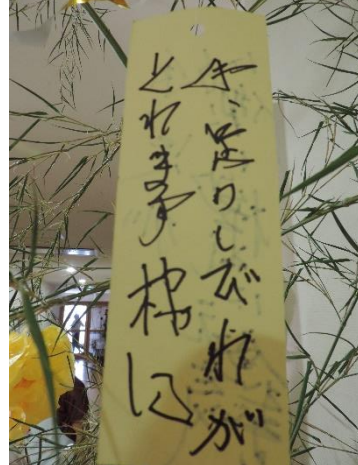 手、足のしびれが
とれます様に